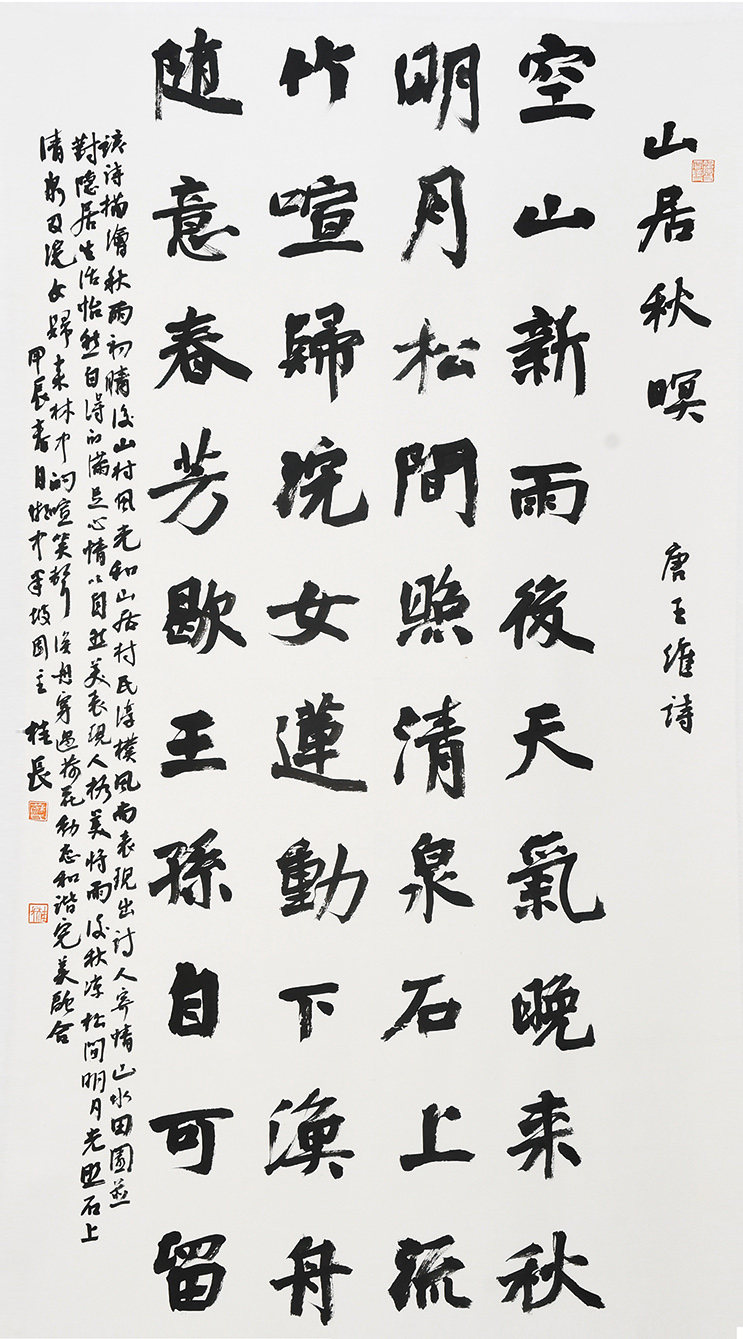 山居秋暝 唐王維詩
空山新雨後天氣晚来秋
明月松間照清泉石上流
竹喧歸浣女蓮動下漁舟
随意春芳歇王孫自可留
該詩描繪秋雨初晴後山村風光和山居村民淳樸風尚表現出詩人寄情山水田園並
對隐居生活怡然自得的滿足心情以自然美表現人格美将雨後秋凉松間明月光照石上
清泉及浣女歸来林中的喧笑聲漁舟穿過荷花動态和谐完美融合
甲辰春月中半坡園主桂長